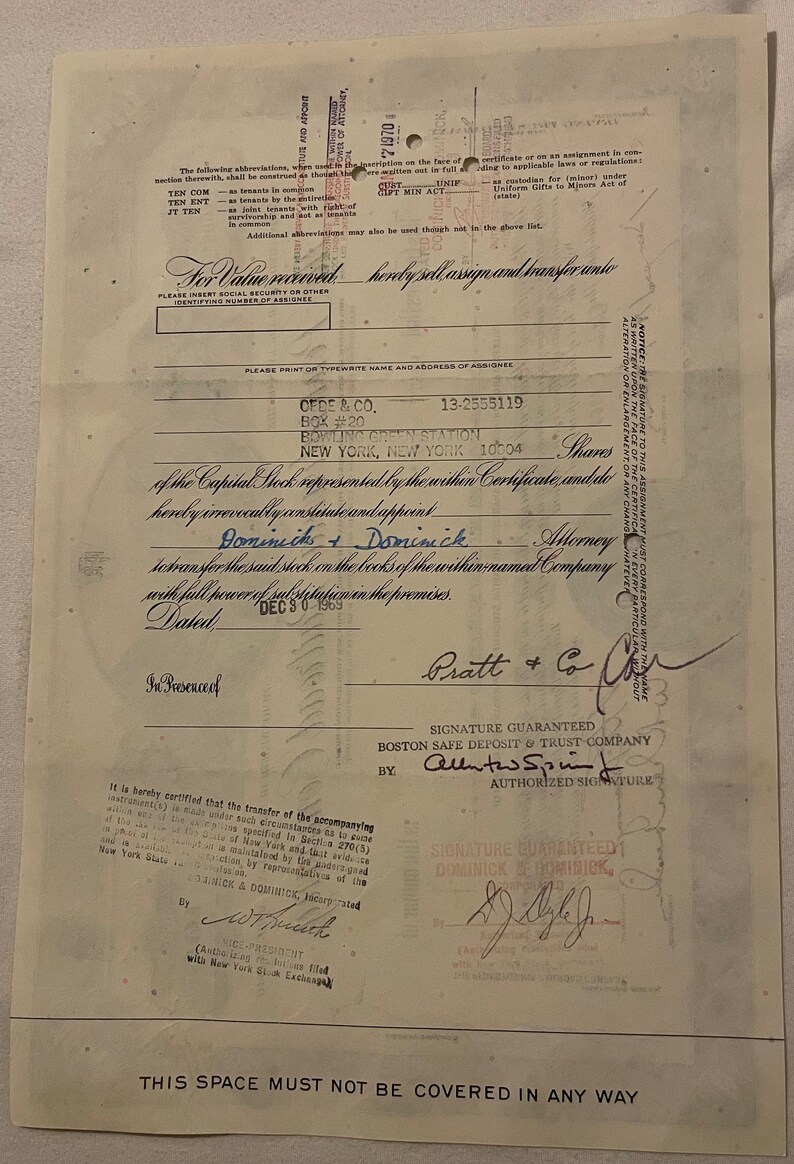 The following abbreviations, when used in the inscription on the face of certificate or on an assignment in con-
nection therewith, shall be construed as though were written out in full according to applicable laws or regulations:
TEN COM — as tenants in common
TEN ENT — as tenants by the entireties
JT TEN — as joint tenants with right of
survivorship and not as tenants
in common
CUST............UNIF
GIFT MIN ACT............
— as custodian for (minor) under
Uniform Gifts to Minors Act of
(state)
Additional abbreviations may also be used though not in the above list.
1970
For Value received, hereby sell, assign and transfer unto
PLEASE INSERT SOCIAL SECURITY OR OTHER
IDENTIFYING NUMBER OF ASSIGNEE
PLEASE PRINT OR TYPEWRITE NAME AND ADDRESS OF ASSIGNEE
CEDE & CO. 13-2555119
BOX #20
BOWLING GREEN STATION
NEW YORK, NEW YORK 10004 Shares
of the Capital Stock represented by the within Certificate, and do
hereby irrevocably constitute and appoint
Dominick + Dominick Attorney
to transfer the said stock on the books of the within-named Company
with full power of substitution in the premises.
Dated, DEC 30 1969
Pratt & Co
In Presence of
SIGNATURE GUARANTEED
BOSTON SAFE DEPOSIT & TRUST COMPANY
BY
AUTHORIZED SIGNATURE
NOTICE: THE SIGNATURE TO THIS ASSIGNMENT MUST CORRESPOND WITH THE NAME
AS WRITTEN UPON THE FACE OF THE CERTIFICATE IN EVERY PARTICULAR, WITHOUT
ALTERATION OR ENLARGEMENT, OR ANY CHANGE WHATEVER
It is hereby certified that the transfer of the accompanying
instrument(s) is made under such circumstances as to come
within one of the exemptions specified in Section 270(5)
of the tax law of the State of New York and that evidence
in proof of the exemption is maintained by the undersigned
and is available for inspection by representatives of the
New York State Tax Commission.
DOMINICK & DOMINICK, Incorporated
By
VICE-PRESIDENT
(Authorizing resolutions filed
with New York Stock Exchange)
SIGNATURE GUARANTEED
DOMINICK & DOMINICK,
By
THIS SPACE MUST NOT BE COVERED IN ANY WAY